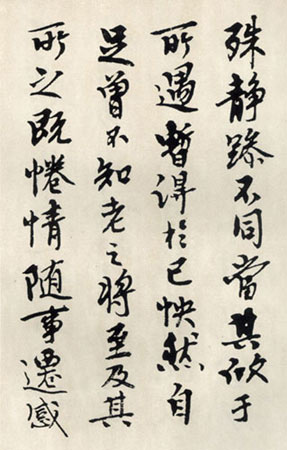 殊静躁不同當其欣于
所遇暫得於己怏然自
足曾不知老之將至及其
所之既惓情随事遷感